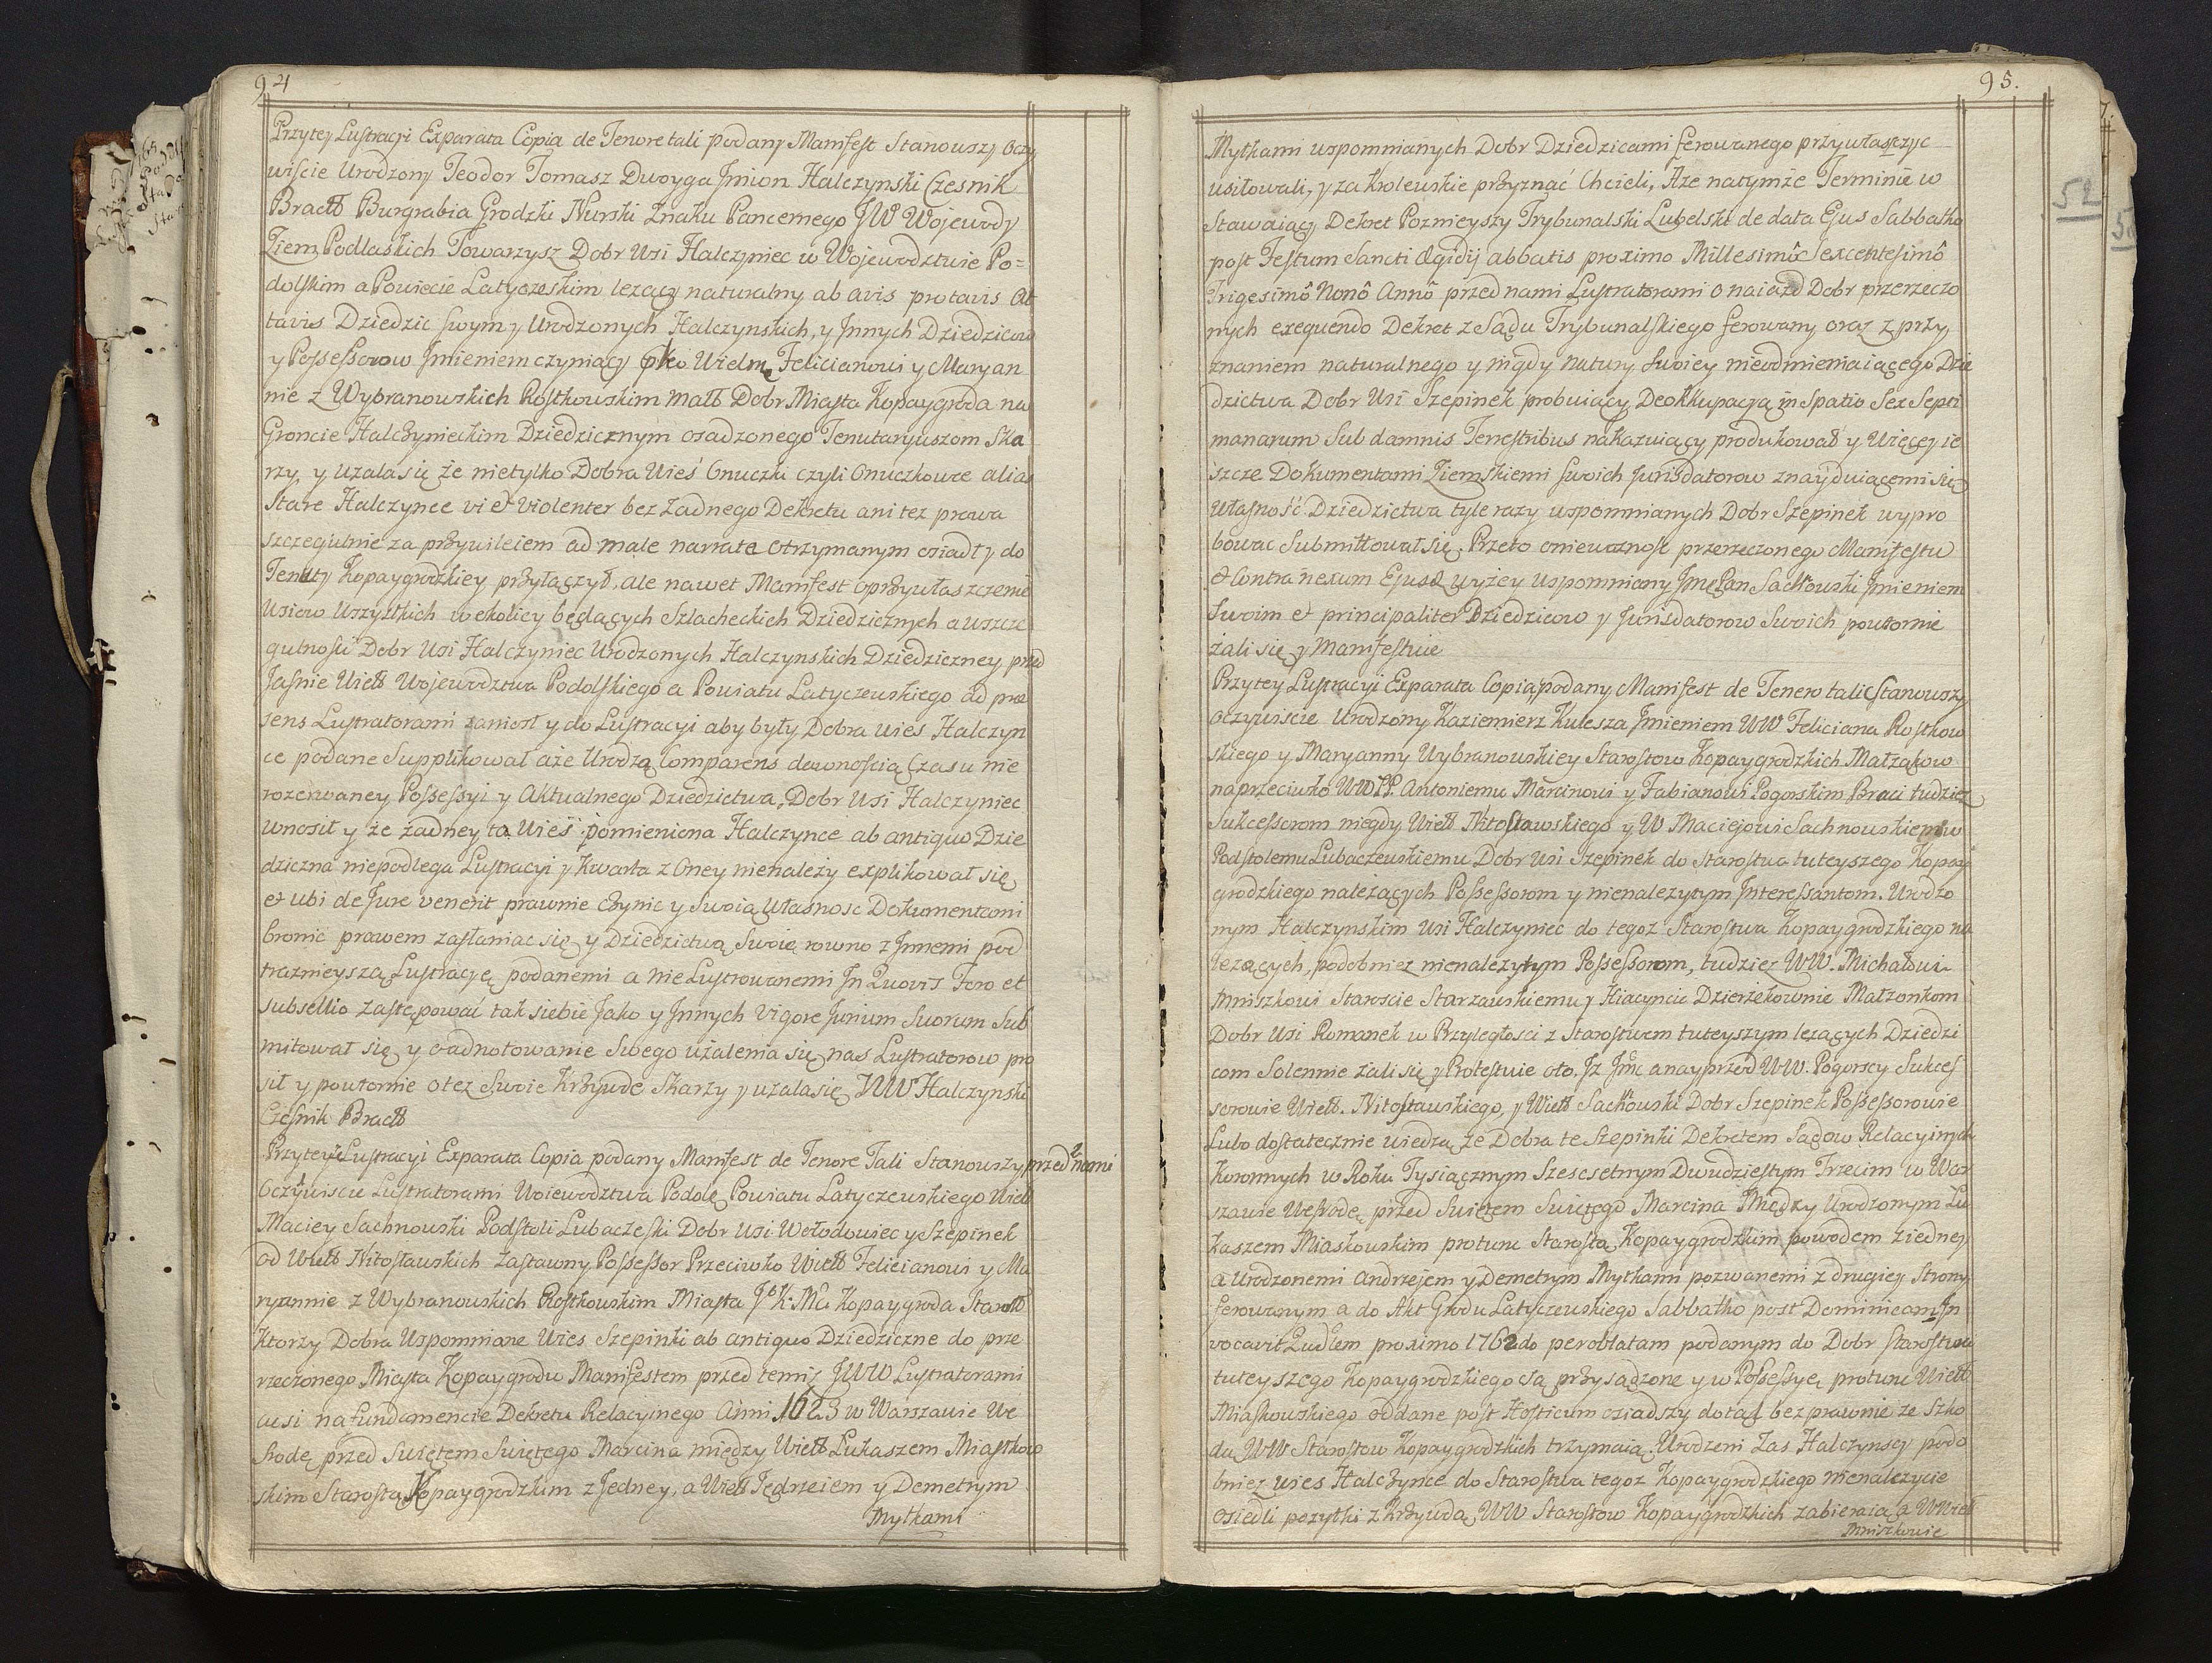 94
Przytey Lustracyi Exparata Copia de Tenore tali podany Manifest Stanowszy Oczy
wiście Urodzony Teodor Tomasz Dwoyga Jmion Halczynski Czesnik
Bracłł Burgrabia Grodzki Nurski Znaku Pancernego JW Wojewody
Ziem Podlaskich Towarzysz Dobr Wsi Halczyniec w Wojewodztwie Po=
dolskim a Powiecie Latyczeskim lezący naturalny ab avis protavis At
tavis Dziedzic swym y Urodzonych Halczynskich, y Jnnych Dziedzicow
y Possessorow Jmieniem czyniący Wielm Felicianowi y Maryan
nie z Wybranowskich Rostkowskim Małł Dobr Miasta Kopaygroda na
Groncie Halczynieckim Dziedzicznym osadzonego Tenutaryuszom Ska
rzy y uzala się że nietylko Dobra Wieś Onuczki czyli Onuczkowce alias
Stare Halczynce vi et violenter bez Zadnego Dekretu ani tez prawa
szczegulnie za przywileiem ad male narrata otrzymanym osiadł y do
Tenuty Kopaygrodzkiey przyłączył, ale nawet Manifest o przywłaszczenie
Wsiow Wszystkich w okolicy będących Szlacheckich Dziedzicznych a wszcze
gulnosci Dobr Wsi Halczyniec Urodzonych Halczynskich Dziedziczney przed
Jasnie Wiełł Wojewodztwa Podolskiego a Powiatu Latyczewskiego ad præ
sens Lustratorami zaniosł y do Lustracyi aby były Dobra wies Halczyn
ce podane Supplikował aże Urodzą Comparens dawnoscią Czasu nie
rozerwaney Possessyi y Aktualnego Dziedzictwa, Dobr Wsi Halczyniec
wnosił y że żadney ta Wieś pomieniona Halczynce ab antiquo Dzie
dziczna niepodlega Lustracyi y Kwarta z Oney nienależy explikował się
et ubi de Jure venerit prawnie czynic y Swoią własnosc Dokumentami
bronic prawem zasłaniac się y Dziedzictwą Swoię rowno z Jnnemi pod
traznieyszą Lustracyę podanemi a nie Lustrowanemi Jn Quovis Foro et
subsellio zastępować tak siebie Jako y Jnnych vigore Jurium Suorum Sub
mitował się y o adnotowanie Swego użalenia się nas Lustratorow pro
sił y powtornie otez Swoie Krzywde Skarzy y uzala się JWW Halczynski
Czesnik Bracłł
Przytey Lustracyi Exparata Copia podany Manifest de Tenore Tali Stanowszy przed nami
Oczywiscie Lustratorami Woiewodztwa Podolę Powiatu Latyczewskiego Wiełł
Maciey Sachnowski Podstoli Lubaczeski Dobr Wsi Wołodowiec y Szepinek
od Wiełł Nitosławskich Zastawny Possessor Przeciwko Wiełł Felicianowi y Ma
ryannie z Wybranowskich Rostkowskim Miasta J K: Mci Kopaygroda Starołł
ktorzy Dobra Wspomniane Wies Szepinki ab antiquo Dziedziczne do prze
rzeczonego Miasta Kopaygrodu Manifestem przed temiż JWW Lustratorami
ausi na fundamencie Dekretu Relacyinego Anni 1623 w Warszawie We
srodę przed Swiętem Swiętego Marcina między Wiełł Łukaszem Miaskow
skim Starostą Kopaygrodzkim z Jedney, a Wiełł Jędrzeiem y Demetrym
Mytkami
95.
Mytkami wspomnianych Dobr Dziedzicami ferowanego przywłaszczyc
usiłowali, y za Krolewskie przyznać Chcieli, Aże natymże Terminie w
Stawaiący Dekret Poznieyszy Trybunalski Lubelski de data Ejus Sabbatho
post Festum Sancti Ægidij abbatis proximo Millesimô Sexcentesimô
Trigesimô Nonô Annô przed nami Lustratorami o naiazd Dobr przerzeczo
nych exequendo Dekret z Sądu Trybunalskiego ferowany oraz z przy
znaniem naturalnego y nigdy natury Swoiey nieodmieniaiącego Dzie
dzictwa Dobr Wsi Szepinek probuiący Deokkupacyą in Spatio Sex Septi
manarum Sub damnis Terrestribus nakazuiący produkował y Więcey ie
szcze Dokumentami Ziemskiemi Swoich Jurisdatorow znayduiącemi się
własność Dziedzictwa tyle razy wspomnianych Dobr Szepinek wypro
bowac Submittował się. Przeto o niewaznosc przerzeczonego Manifestu
et Contranexum Ejusd wyżey wspomniany Jmc Pan Sachowski Jmieniem
Swoim et principaliter Dziedzicow y Jurisdatorow Swoich powtornie
żali się y Manifestuie
Przytey Lustracyi Exparata Copia podany Manifest de Tenero tali Stanowszy
Oczywiscie Urodzony Kaziemierz Kulesza Jmieniem WW Feliciana Rostkow
skiego y Maryanny Wybranowskiey Starostow Kopaygrodzkich Małząkow
naprzeciwko WW. PP. Antoniemu Marcinowi y Fabianowi Pogorskim Braci tudzież
Sukcessorom niegdy Wiełł Nitosławskiego y W Maciejowi Sachnowskiemu
Podstolemu Lubaczewskiemu Dobr Wsi Szepinek do Starostwa tuteyszego Kopay
grodzkiego należących Possessorom y nienalezytym Jnteressantom. Urodzo
nym Halczynskim Wsi Halczyniec do tegoż Starostwa Kopaygrodzkiego na
lezących, podobniez nienalezytym Possessorom, tudziez WW. Michałowi
Mniszkowi Staroscie Starzawskiemu y Hiacyncie Dzierżekownie Małzonkom
Dobr Wsi Romanek w Przyległosci z Starostwem tuteyszym lezących Dziedzi
com Solennie zali się y Protestuie oto. Jz Jmc a nayprzod WW. Pogorscy Sukces
sorowie Wiełł. Nitosławskiego, y Wiełł Sachowski Dobr Szepinek Possessorowie
Lubo dostatecznie wiedzą, że Dobra te Szepinki Dekretem Sądow Relacyinych
Koronnych w Roku Tysiącznym Szescsetnym Dwudziestym Trzecim w War
szawie Wesrodę przed Swiętem Swiętego Marcina Między Urodzonym Łu
kaszem Miaskowskim protunc Starostą Kopaygrodzkim powodem z iedney
a Urodzonemi Andrzejem y Demetrym Mytkami pozwanemi z drugiey Strony
ferowanym a do Akt Grodu Latyczewskiego Sabbatho post Dominicam Jn
vocavit Qudłem proximo 1762do per oblatam podanym do Dobr Starostwa
tuteyszego Kopaygrodzkiego są przysądzone y w Possessyę protunc Wiełł
Miaskowskiego oddane post Hosticum osiadszy dotąd bezprawnie ze Szko
dą WW Starostow Kopaygrodzkich trzymaią. Urodzeni Zas Halczynscy podo
bniez wies Halczynce do Starostwa tegoz Kopaygrodzkiego nienalezycie
Osiedli pozytki z Krzywdą WW Starostow Kopaygrodzkich zabieraią a WWieł
Mniszkowie
52